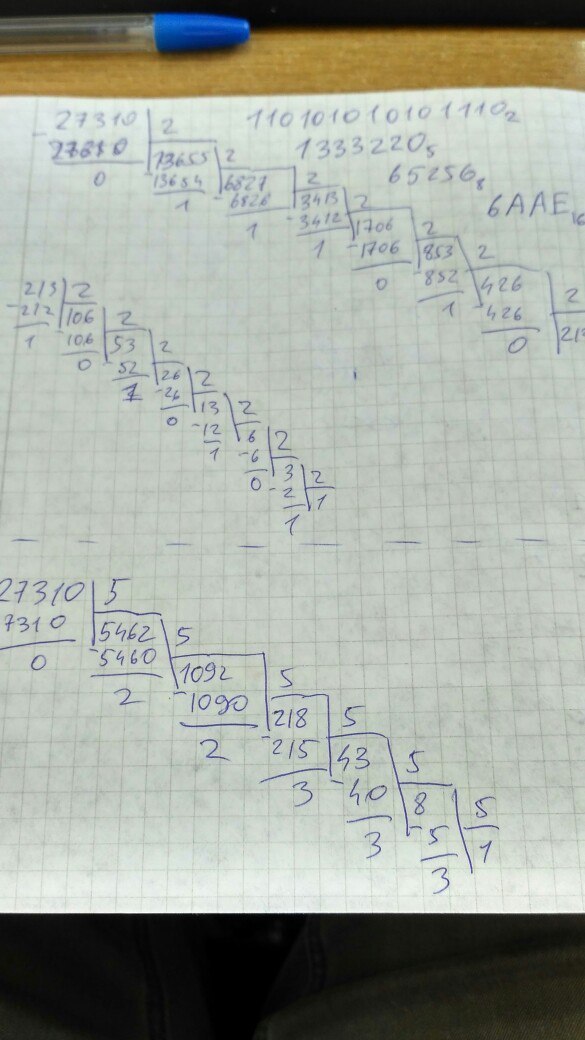 27310 2 110101010101110₂
27310 13655 2 1333220₅
0 13654 6827 2 65256₈
1 6826 3413 2 6AAE₁₆
1 3412 1706 2
1 1706 853 2
0 852 426 2
1 426 213
0
213 2
212 106 2
1 106 53 2
0 52 26 2
1 26 13 2
0 12 6 2
1 6 3 2
0 2 1
1
27310 5
7310 5462 5
0 5460 1092 5
2 1090 218 5
2 215 43 5
3 40 8 5
3 5 1
3